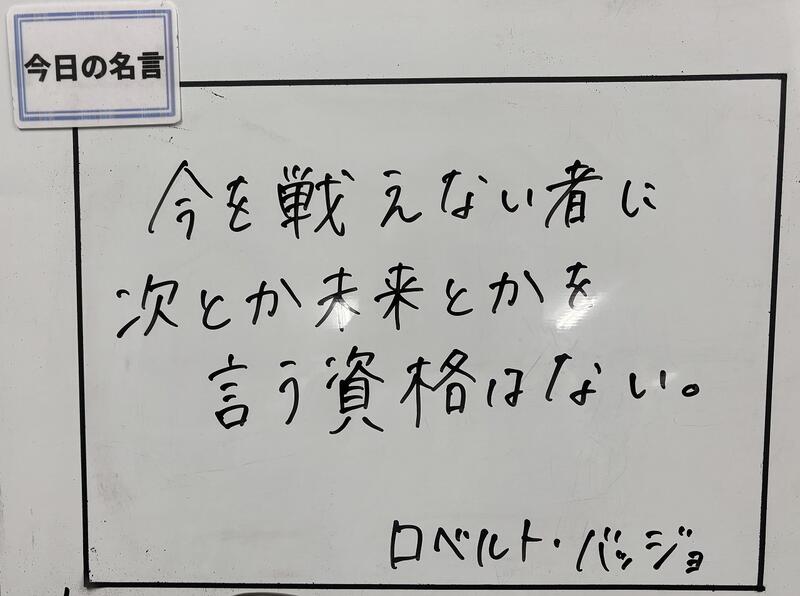 今日の名言
今を戦えない者に
次とか未来とかを
言う資格はない。
ロベルト・バッジョ